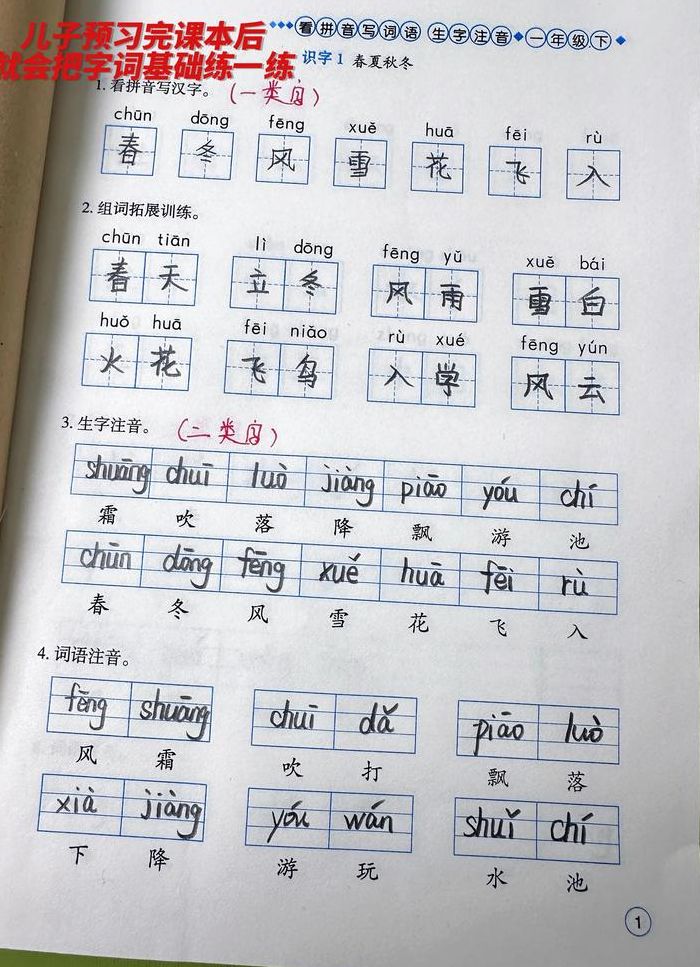 儿子预习完课本后
就会把字词基础练一练
看拼音写词语 生字注音 一年级下
识字1 春夏秋冬
1. 看拼音写汉字。(一类字)
chūn dōng fēng xuě huā fēi rù
春 冬 风 雪 花 飞 入
2. 组词拓展训练。
chūn tiān lì dōng fēng yǔ xuě bái
春天 立冬 风雨 雪白
huǒ huā fēi niǎo rù xué fēng yún
火花 飞鸟 入学 风云
3. 生字注音。(二类字)
shuāng chuī luò jiàng piāo yóu chí
霜 吹 落 降 飘 游 池
chūn dōng fēng xuě huā fēi rù
春 冬 风 雪 花 飞 入
4. 词语注音。
fēng shuāng chuī dǎ piāo luò
风 霜 吹 打 飘 落
xià jiàng yóu wán shuǐ chí
下 降 游 玩 水 池
1